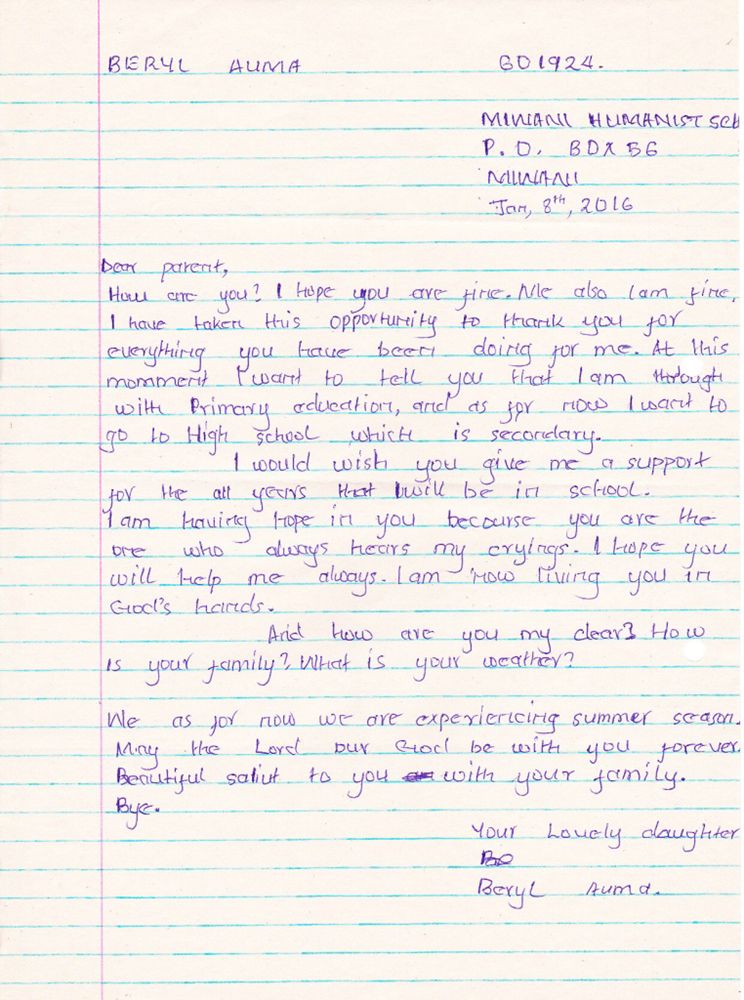 BERYL AUMA GO1924.
MIWANI HUMANIST SCH
P.O. BOX 56
MIWANI
Jan, 8th, 2016
Dear parent,
How are you? I Hope you are fine. Me also I am fine,
I have taken this opportunity to thank you for
everything you have been doing for me. At this
momment I want to tell you that I am through
with Primary education, and as for now I want to
go to High school which is secondary.
I would wish you give me a support
for the all years that I will be in school.
I am having hope in you becourse you are the
one who always hears my cryings. I hope you
will help me always. I am now living you in
God's hands.
And how are you my dear? How
is your family? What is your weather?
We as for now we are experiencing summer season.
May the Lord our God be with you forever.
Beautiful salut to you with your family.
Bye.
Your Lovely daughter
Be
Beryl Auma.